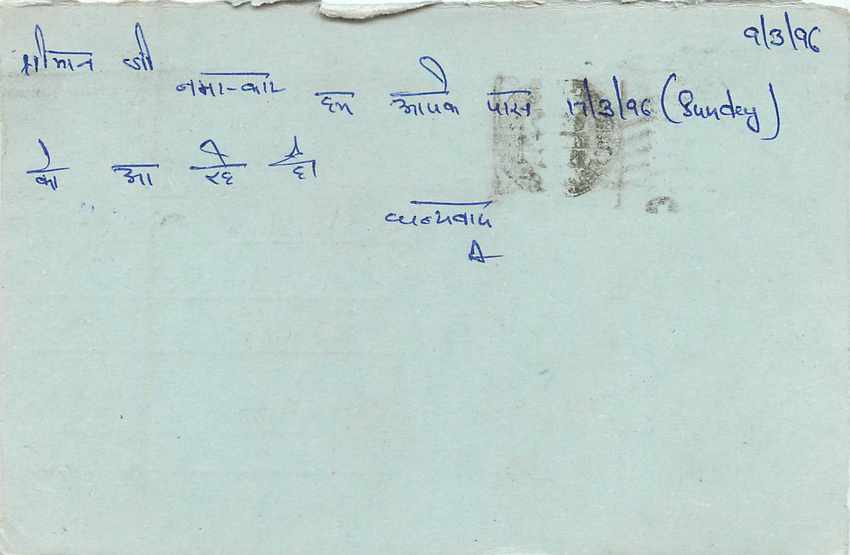 9/3/96
श्रीमान जी
नमस्कार हम आपके पास 17/3/96 (Sunday)
को आ रहे हैं।
धन्यवाद
A